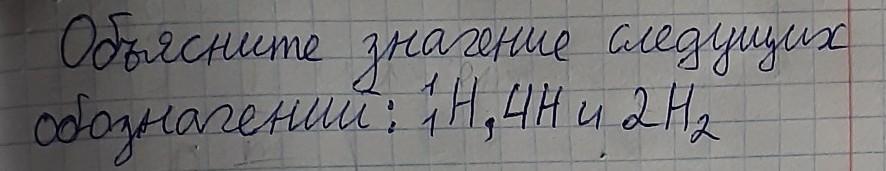 Объясните значение следущих
обозначений: ¹₁H, 4H и 2H₂